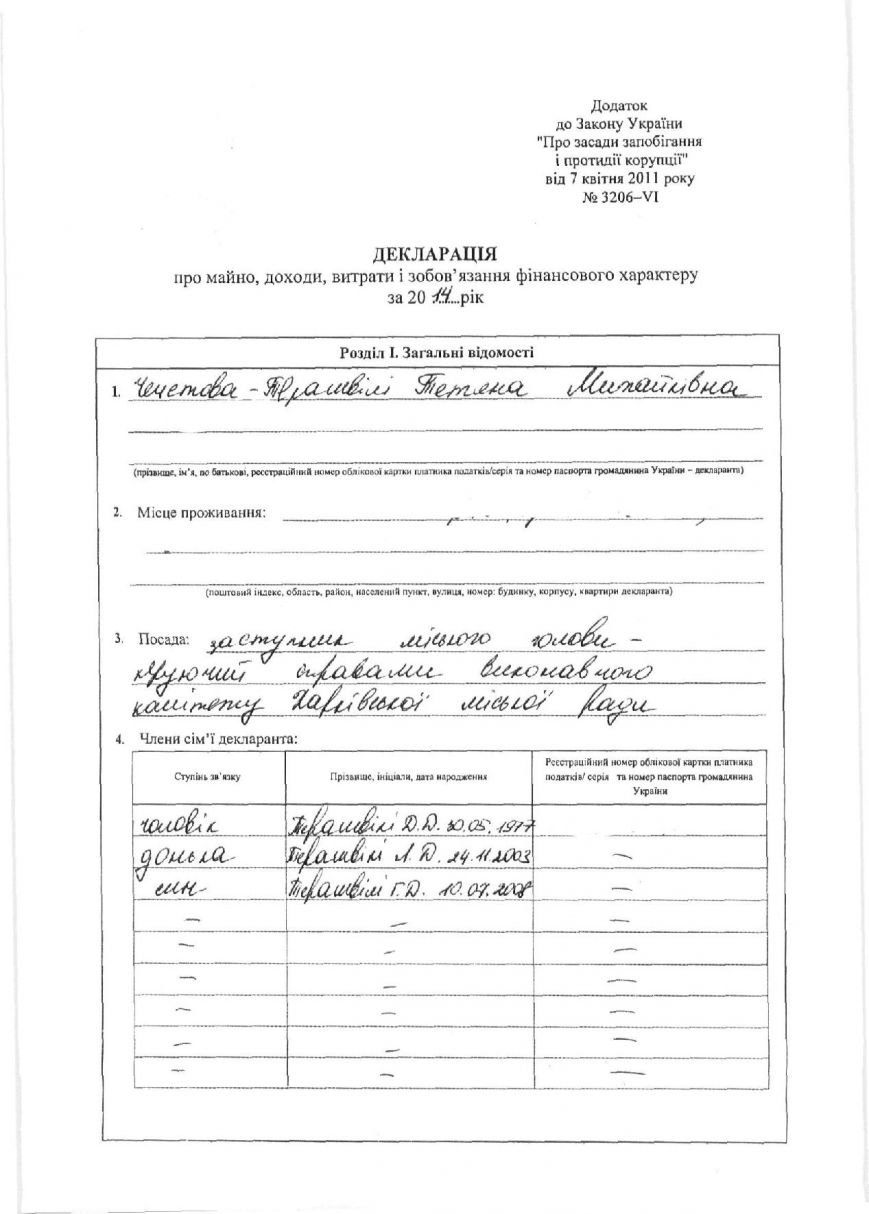 Додаток
до Закону України
"Про засади запобігання
і протидії корупції"
від 7 квітня 2011 року
№ 3206–VI
ДЕКЛАРАЦІЯ
про майно, доходи, витрати і зобов’язання фінансового характеру
за 20 14 рік
Розділ І. Загальні відомості
1. Чечетова-Терашвілі Тетяна Михайлівна
(прізвище, ім’я, по батькові, реєстраційний номер облікової картки платника податків/серія та номер паспорта громадянина України – декларанта)
2. Місце проживання:
(поштовий індекс, область, район, населений пункт, вулиця, номер: будинку, корпусу, квартири декларанта)
3. Посада: заступник міського голови –
керуючий справами виконавчого
комітету Харківської міської ради
4. Члени сім’ї декларанта:
Ступінь зв’язку
Прізвище, ініціали, дата народження
Реєстраційний номер облікової картки платника
податків/ серія та номер паспорта громадянина
України
чоловік Терашвілі Д.Д. 30.05.1977
донька Терашвілі Л.Д. 24.11.2003 –
син Терашвілі Г.Д. 10.07.2008 –
– – –
– – –
– – –
– – –
– – –
– – –